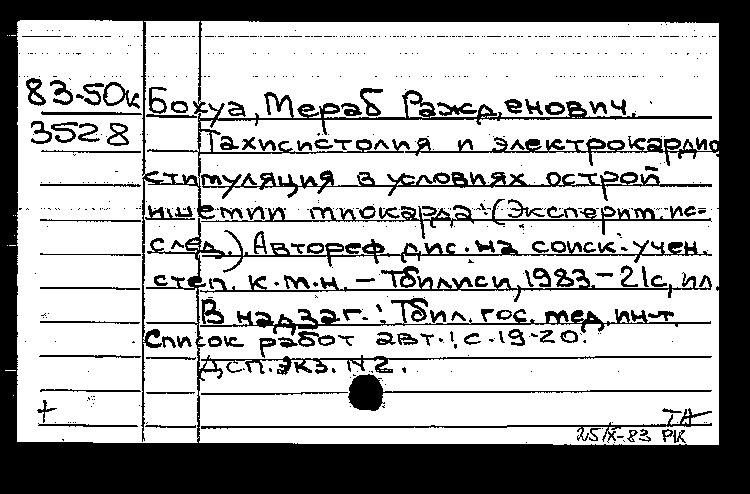 83-50к Бохуа, Мераб Ражденович.
3528 Тахисистолия и электрокардио
стимуляция в условиях острой
ишемии миокарда: (Эксперим. ис=
след.). Автореф. дис. на соиск. учен.
степ. к.м.н. – Тбилиси, 1983. – 21с, ил.
В надзаг.: Тбил. гос. мед. ин-т.
Список работ авт.: с. 19-20.
Дсп. экз. N2.
+
25/X-83 РК